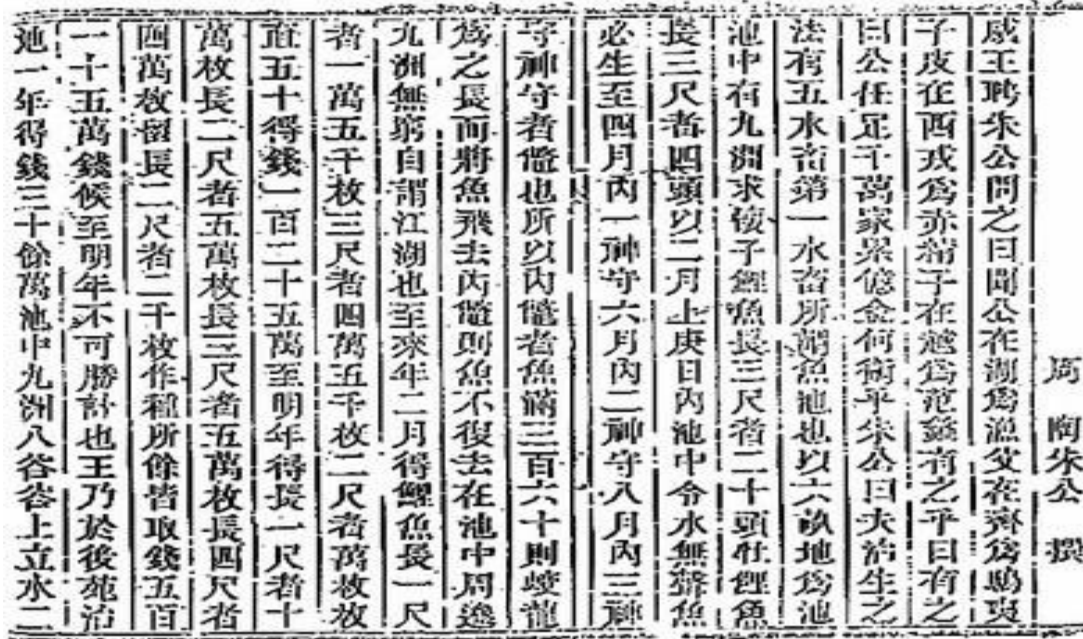 周 陶朱公 撰
威王聘朱公問之曰聞公在湖爲漁父在齊爲鴟夷
子皮在西戎爲赤精子在越爲范蠡有之乎曰有之
曰公任足千萬家累億金何術乎朱公曰夫治生之
法有五水畜第一水畜所謂魚池也以六畝地爲池
池中有九洲求懷子鯉魚長三尺者二十頭牡鯉魚
長三尺者四頭以二月上庚日內池中令水無聲魚
必生至四月內一神守六月內二神守八月內三神
守神守者鼈也所以內鼈者魚滿三百六十則蛟龍
爲之長而將魚飛去內鼈則魚不復去在池中周遶
九洲無窮自謂江湖也至來年二月得鯉魚長一尺
者一萬五千枚三尺者四萬五千枚二尺者萬枚枚
直五十得錢一百二十五萬至明年得長一尺者十
萬枚長二尺者五萬枚長三尺者五萬枚長四尺者
四萬枚留長二尺者二千枚作種所餘皆取錢五百
一十五萬錢候至明年不可勝計也王乃於後苑治
池一年得錢三十餘萬池中九洲八谷谷上立水二